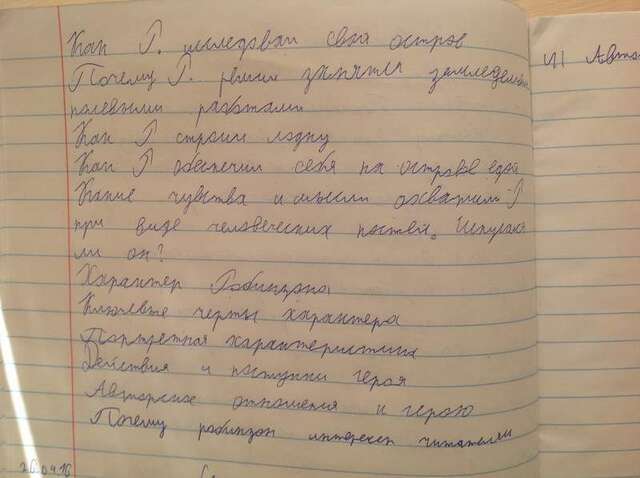 Как Р. исследовал свой остров
Почему Р. решил заняться земледелием
полевыми работами
Как Р строил лодку
Как Р обеспечил себя на острове едой
Какие чувства и мысли охватили Р
при виде человеческих костей. Испугался
ли он?
Характер Робинзона
Ключевые черты характера
Портретная характеристика
Действия и поступки героя
Авторское отношения к герою
Почему робинзон интересен читателям
26.04.16
VI Автор